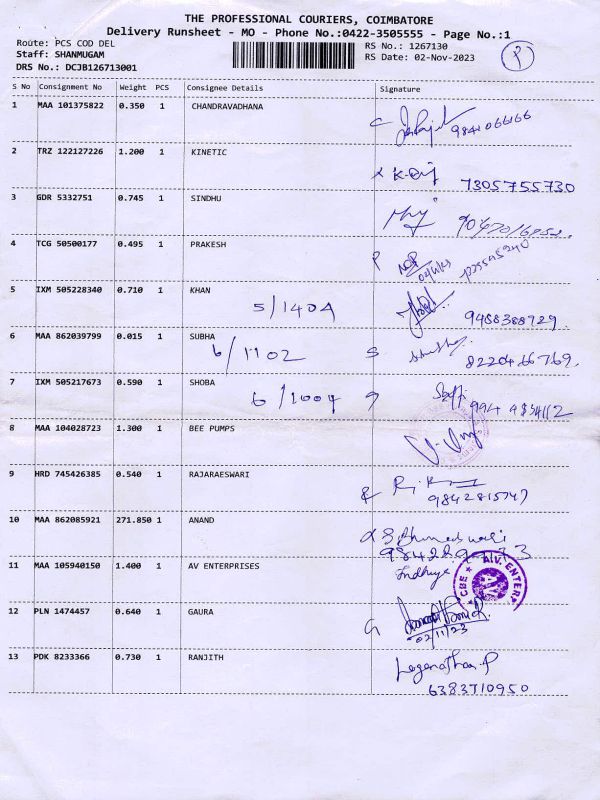 THE PROFESSIONAL COURIERS, COIMBATORE
Delivery Runsheet - MO - Phone No.:0422-3505555 - Page No.:1
Route: PCS COD DEL RS No.: 1267130 P
Staff: SHANMUGAM RS Date: 02-Nov-2023
DRS No.: DCJB126713001
S No Consignment No Weight PCS Consignee Details Signature
1 MAA 101375822 0.350 1 CHANDRAVADHANA
2 TRZ 122127226 1.200 1 KINETIC
7305755730
3 GDR 5332751 0.745 1 SINDHU
4 TCG 50500177 0.495 1 PRAKESH P
5 IXM 505228340 0.710 1 KHAN
5/1404 9488388929.
6 MAA 862039799 0.015 1 SUBHA
6/1102 S 8220466769.
7 IXM 505217673 0.590 1 SHOBA
6/1004 994 9834112
8 MAA 104028723 1.300 1 BEE PUMPS
9 HRD 745426385 0.540 1 RAJARAESWARI
R 9842815747
10 MAA 862085921 271.850 1 ANAND
11 MAA 105940150 1.400 1 AV ENTERPRISES
CBE ★ A.V. ENTER
AV
12 PLN 1474457 0.640 1 GAURA
G 02/11/23
13 PDK 8233366 0.730 1 RANJITH
Loganathan.P
6383710950